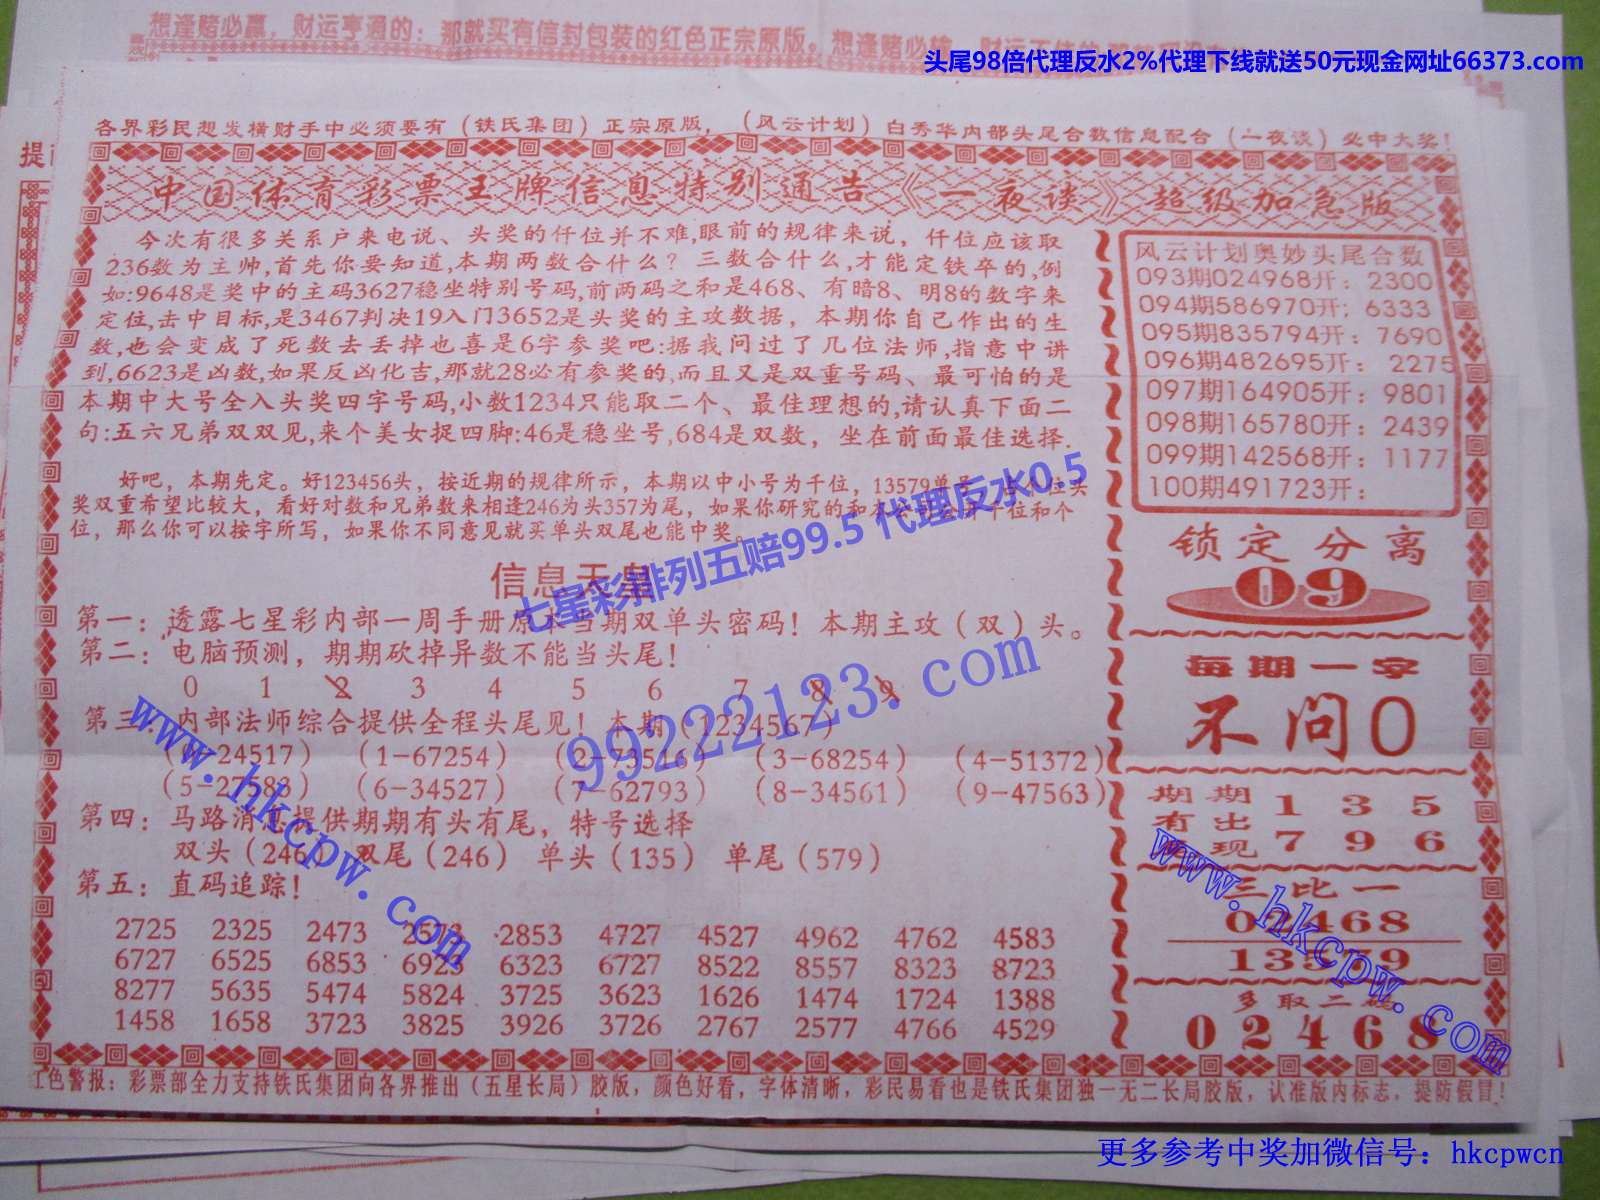 想逢赌必赢，财运亨通的：那就买有信封包装的红色正宗原版。想逢赌必
头尾98倍代理反水2%代理下线就送50元现金网址66373.com
各界彩民想发横财手中必须要有（铁氏集团）正宗原版，（风云计划）白秀华内部头尾合数信息配合（一夜谈）必中大奖！
提
中国体育彩票王牌信息特别通告《一夜谈》超级加急版
今次有很多关系户来电说、头奖的仟位并不难,眼前的规律来说，仟位应该取
236数为主帅,首先你要知道,本期两数合什么？三数合什么,才能定铁卒的,例
如:9648是奖中的主码3627稳坐特别号码,前两码之和是468、有暗8、明8的数字来
定位,击中目标,是3467判决19入门3652是头奖的主攻数据，本期你自己作出的生
数,也会变成了死数去丢掉也喜是6字参奖吧:据我问过了几位法师,指意中讲
到,6623是凶数,如果反凶化吉,那就28必有参奖的,而且又是双重号码、最可怕的是
本期中大号全入头奖四字号码,小数1234只能取二个、最佳理想的,请认真下面二
句:五六兄弟双双见,来个美女捉四脚:46是稳坐号,684是双数，坐在前面最佳选择.
好吧，本期先定。好123456头，按近期的规律所示，本期以中小号为千位，13579单号
奖双重希望比较大，看好对数和兄弟数来相逢246为头357为尾，如果你研究的和本
位，那么你可以按字所写，如果你不同意见就买单头双尾也能中奖。
七星彩排列五赔99.5 代理反水0.5
信息天皇
第一：透露七星彩内部一周手册原本当期双单头密码！本期主攻（双）头。
第二：电脑预测，期期砍掉异数不能当头尾！
0 1 2 3 4 5 6 7 8 9
第三：内部法师综合提供全程头尾见！本期（1234567）
（0-24517）（1-67254）（2-73546）（3-68254）（4-51372）
（5-27583）（6-34527）（7-62793）（8-34561）（9-47563）
第四：马路消息提供期期有头有尾，特号选择
双头（246） 双尾（246） 单头（135） 单尾（579）
第五：直码追踪！
2725 2325 2473 2573 2853 4727 4527 4962 4762 4583
6727 6525 6853 6923 6323 6727 8522 8557 8323 8723
8277 5635 5474 5824 3725 3623 1626 1474 1724 1388
1458 1658 3723 3825 3926 3726 2767 2577 4766 4529
99222123.com
www.hkcpw.com
风云计划奥妙头尾合数
093期024968开：2300
094期586970开；6333
095期835794开：7690
096期482695开：2275
097期164905开：9801
098期165780开：2439
099期142568开：1177
100期491723开：
锁定分离
09
每期一字
不问0
期期 1 3 5
有出
现 7 9 6
三比一
02468
13579
多取二
02468
www.hkcpw.com
红色警报：彩票部全力支持铁氏集团向各界推出（五星长局）胶版，颜色好看，字体清晰，彩民易看也是铁氏集团独一无二长局胶版，认准版内标志，提防假冒！
更多参考中奖加微信号：hkcpwcn